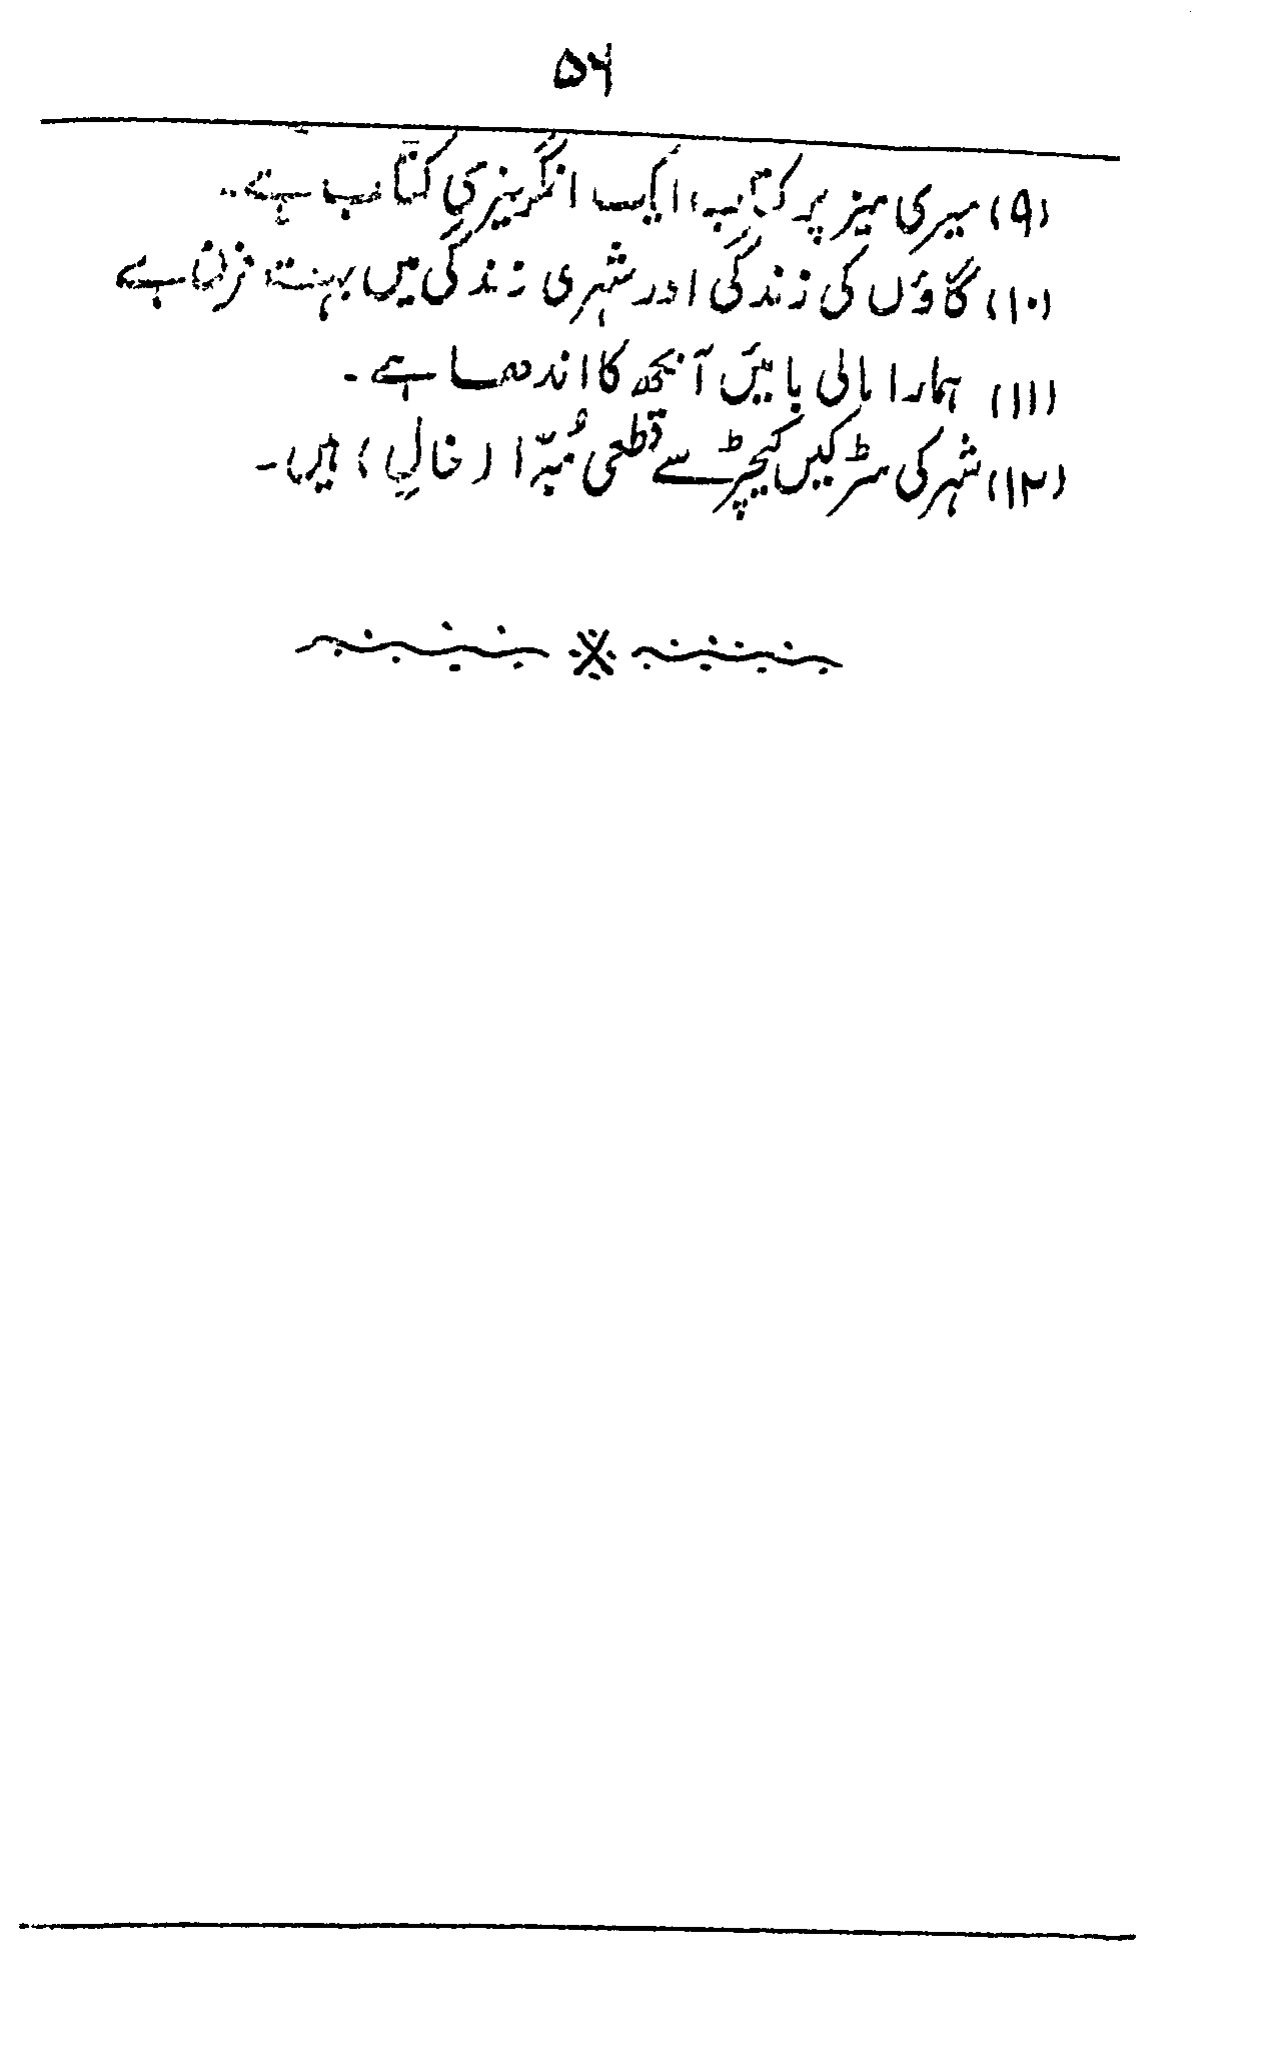 ۵۶
(۹) میری میز پر کتاب، ایک انگریزی کتاب ہے۔
(۱۰) گاؤں کی زندگی اور شہری زندگی میں بہت فرق ہے
(۱۱) ہمارا مالی بائیں آنکھ کا اندھا ہے۔
(۱۲) شہر کی سڑکیں کیچڑ سے قطعی مُبرّا (خالی) ہیں۔